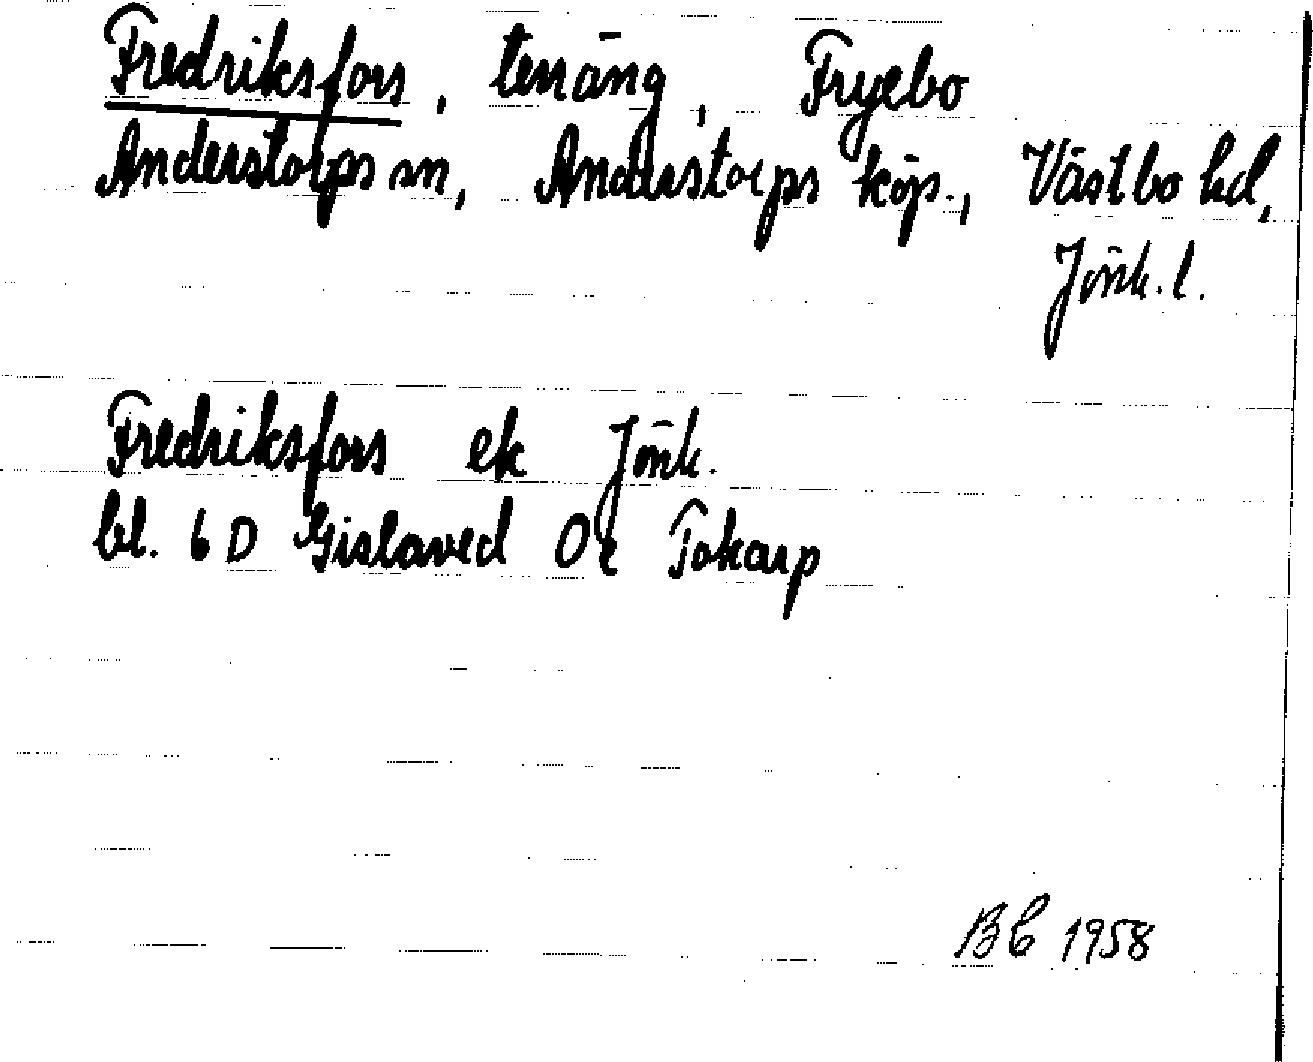 Fredriksfors, terräng, Fryebo
Anderstorps sn, Anderstorps köp., Västbo hd,
Jönk. l.
Fredriksfors ek Jönk.
bl. 6 D Gislaved Ot Tokarp
BC 1958